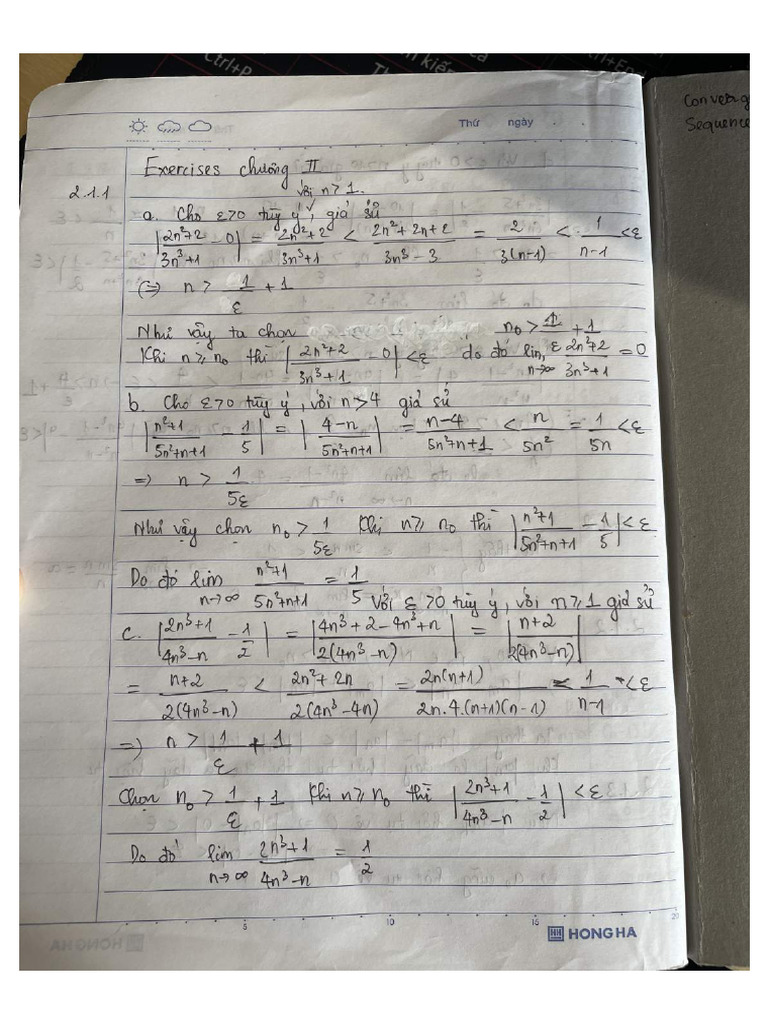 Ctrl+P
m kiến
Th
Ctrl+En
Converg
Sequence
Thứ ngày
Exercises chương II
2.1.1
với n > 1.
a. Cho ε>0 tùy ý, giả sử
|2n²+2/3n³+1 - 0| = 2n²+2/3n³+1 < 2n²+2n+2/3n³-3 = 2/3(n-1) < 1/n-1 < ε
(=) n > 1/ε + 1
Như vậy ta chọn n₀ > 1/ε + 1
Khi n ≥ n₀ thì |2n²+2/3n³+1 - 0| < ε do đó lim n→∞ 2n²+2/3n³+1 = 0
b. Cho ε>0 tùy ý, với n>4 giả sử
|n²+1/5n²+n+1 - 1/5| = |4-n/5n²+n+1| = n-4/5n²+n+1 < n/5n² = 1/5n < ε
=> n > 1/5ε
Như vậy chọn n₀ > 1/5ε Khi n ≥ n₀ thì |n²+1/5n²+n+1 - 1/5| < ε
Do đó lim n→∞ n²+1/5n²+n+1 = 1/5
Với ε>0 tùy ý, với n ≥ 1 giả sử
c. |2n³+1/4n³-n - 1/2| = |4n³+2-4n³+n/2(4n³-n)| = |n+2/2(4n³-n)|
= n+2/2(4n³-n) < 2n²+2n/2(4n³-4n) = 2n(n+1)/2n.4.(n+1)(n-1) < 1/n-1 < ε
=> n > 1/ε + 1
Chọn n₀ > 1/ε + 1 Khi n ≥ n₀ thì |2n³+1/4n³-n - 1/2| < ε
Do đó lim n→∞ 2n³+1/4n³-n = 1/2
5 10 15 20
HONG HA